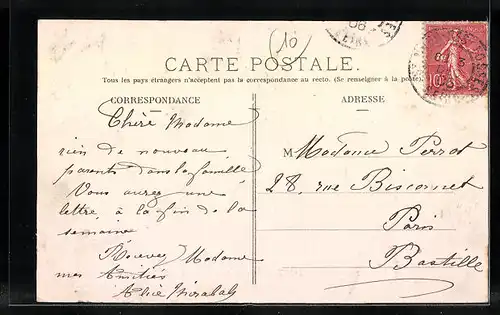 (10)
CARTE POSTALE.
Tous les pays étrangers n'acceptent pas la correspondance au recto. (Se renseigner à la poste).
CORRESPONDANCE
Chère Madame
rien de nouveau
parents dans la famille
Vous aurez une
lettre à la fin de la
semaine
Recevez Madame
mes Amitiés
Alice
ADRESSE
M Madame Perrot
28, rue Biscornet
Paris
Bastille
10